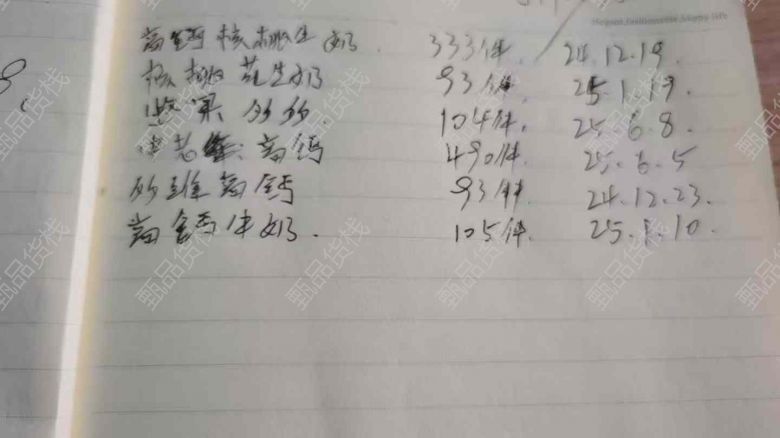 Elegant, fashionable, Merry life
高钙核桃牛奶 333件 24.12.19.
核桃花生奶 93件. 25.1.19.
坚果 104件. 25.6.8.
中老年 高钙 490件 25.6.5
维高钙 93件 24.12.23.
高钙牛奶. 105件. 25.1.10.
甄品货栈